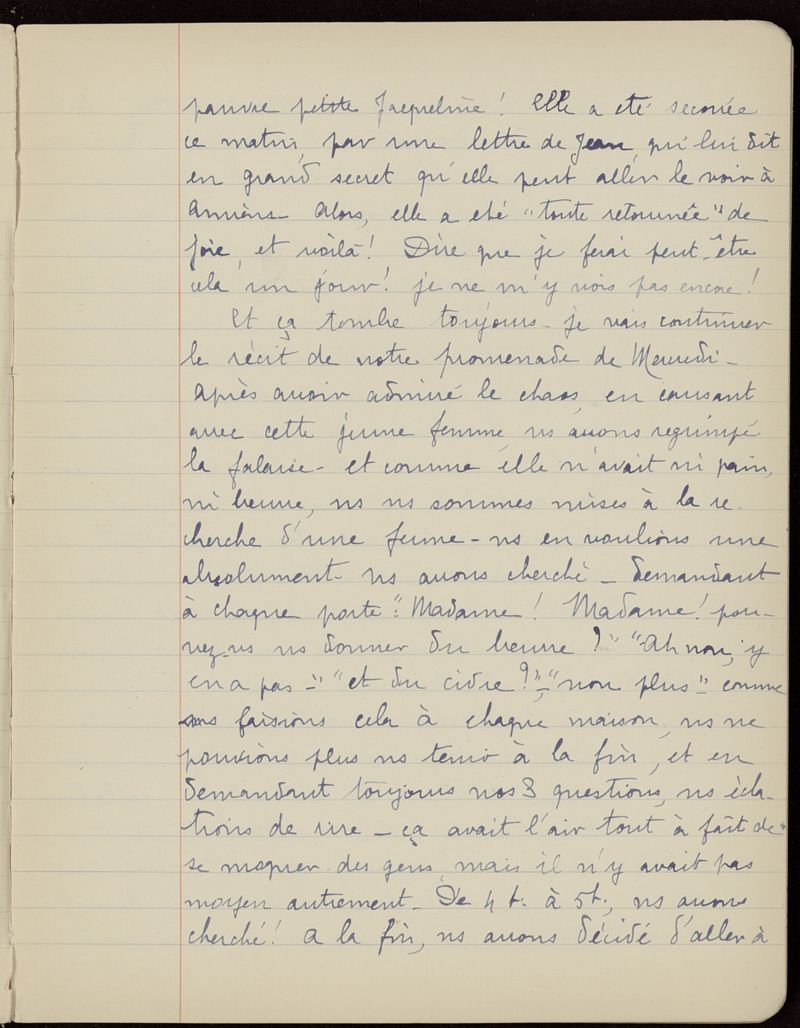 pauvre petite Jacqueline! Elle a été secouée
ce matin, par une lettre de Jean, qui lui dit
en grand secret qu'elle peut aller le voir à
Amiens - Alors, elle a été "toute retournée" de
joie, et voilà! Dire que je ferai peut-être
cela un jour! je ne m'y vois pas encore!
Et ça tombe toujours - je vais continuer
le récit de notre promenade de Mercredi -
Après avoir admiré le chaos, en causant
avec cette jeune femme, ns avons regrimpé
la falaise - et comme elle n'avait ni pain,
ni beurre, ns ns sommes mises à la re-
cherche d'une ferme - ns en voulions une
absolument - ns avons cherché - demandant
à chaque porte: "Madame! Madame! pou-
vez-vs ns donner du beurre?" "Ah non, y
en a pas -" "et du cidre?" - "non plus" - comme
ns faisions cela à chaque maison, ns ne
pouvions plus ns tenir à la fin, et en
demandant toujours nos 3 questions, ns écla-
tions de rire - ça avait l'air tout à fait de
se moquer des gens, mais il n'y avait pas
moyen autrement - De 4 h. à 5 h., ns avons
cherché! A la fin, ns avons décidé d'aller à